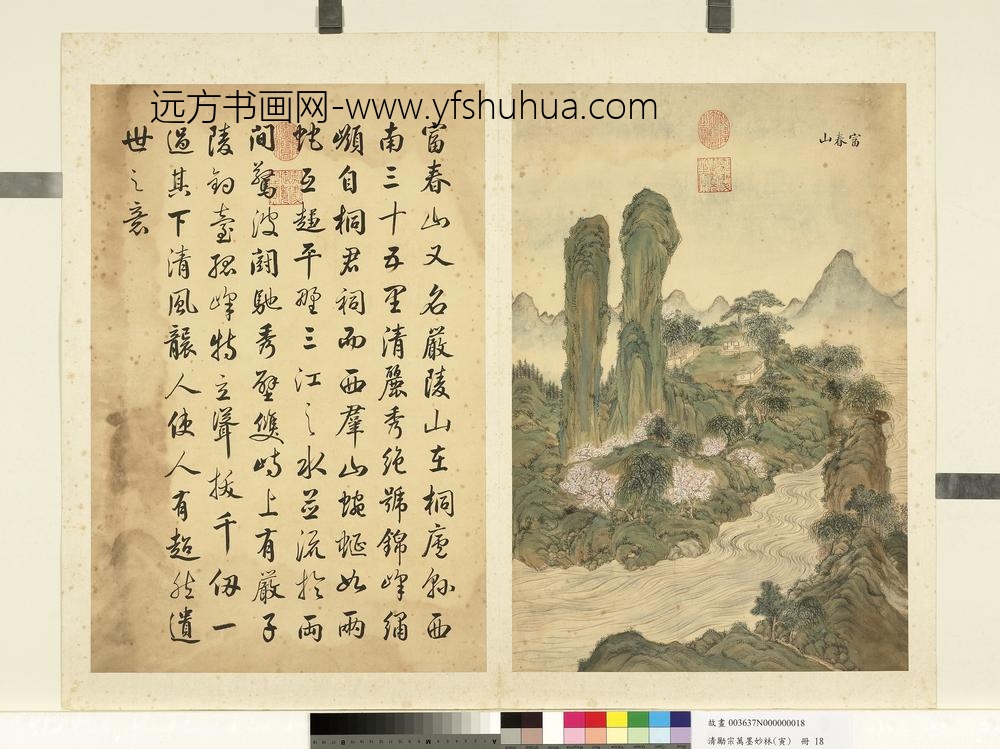 远方书画网-www.yfshuhua.com
富春山
富春山又名嚴陵山在桐廬縣西
南三十五里清麗秀絕號錦峰繡
嶺自桐君祠而西羣山蜿蜒如兩
蛇互趨平野三江之水並流於両
間驚波鬭馳秀壁雙峙上有嚴子
陵釣臺孤峰特立聳拔千仞一
過其下清風襲人使人有超然遺
世之意
故畫 003637N000000018
清勵宗萬墨妙林(寅) 冊 18